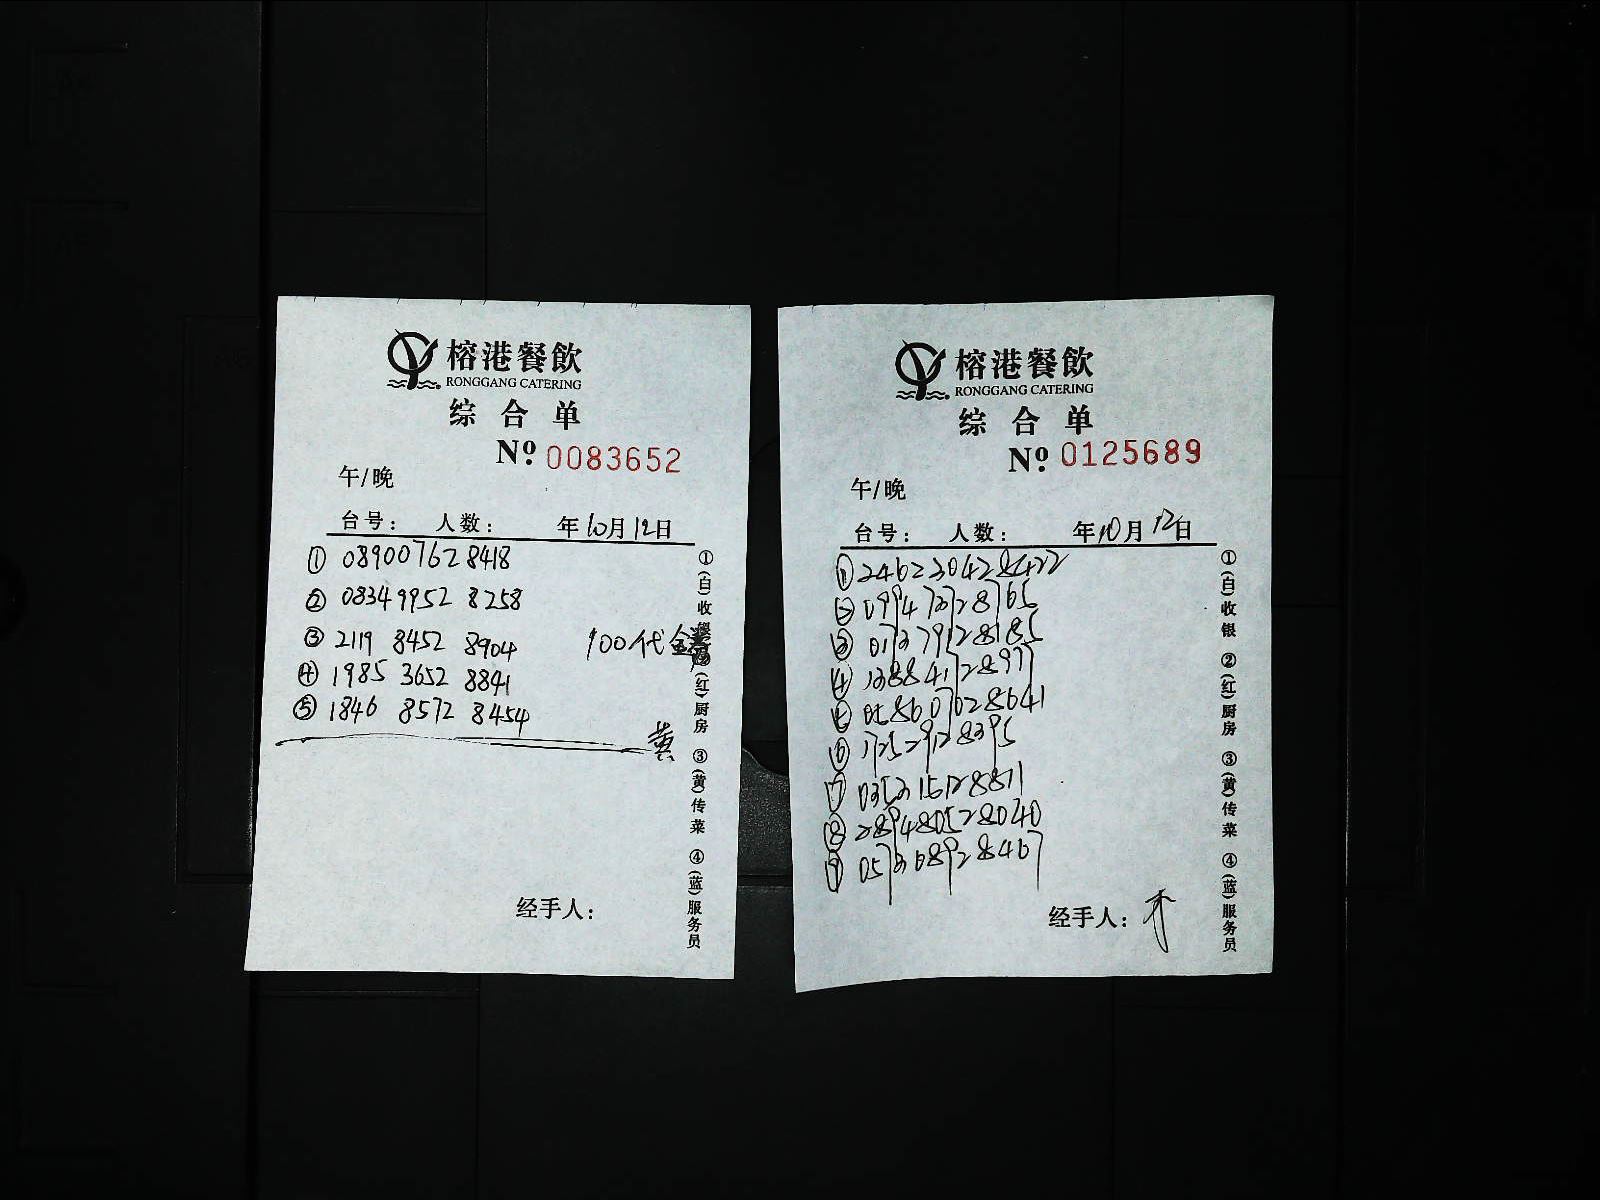 榕港餐飲
RONGGANG CATERING
综合单
Nº 0083652
午/晚
台号: 人数: 年10月12日
① 089007628418
② 08349952 8258
③ 2119 8452 8904
100代金
④ 1985 3652 8841
⑤ 1846 8572 8454
黄
经手人:
①(白)收银 ②(红)厨房 ③(黄)传菜 ④(蓝)服务员
榕港餐飲
RONGGANG CATERING
综合单
Nº 0125689
午/晚
台号: 人数: 年10月12日
① 246230428422
② 099473728765
③ 017379128185
④ 138841728977
⑤ 058607028641
⑥
⑦ 035315128811
⑧ 289480528040
⑨ 057368928467
经手人:
①(白)收银 ②(红)厨房 ③(黄)传菜 ④(蓝)服务员